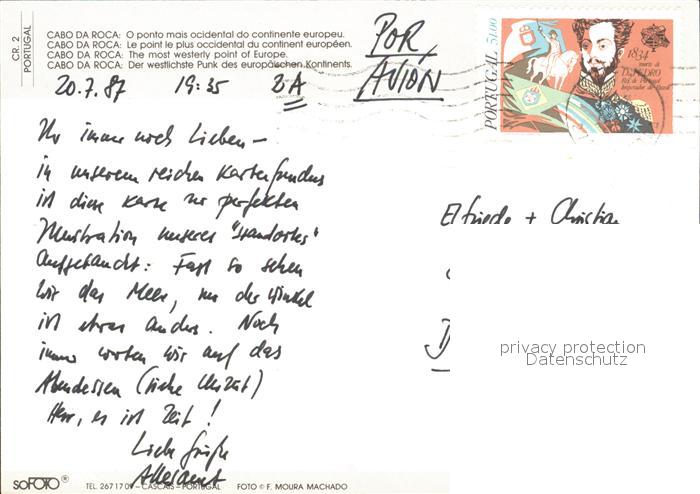 CR. 2
PORTUGAL
CABO DA ROCA: O ponto mais ocidental do continente europeu.
CABO DA ROCA: Le point le plus occidental du continent européen.
CABO DA ROCA: The most westerly point of Europe.
CABO DA ROCA: Der westlichste Punk des europäischen Kontinents.
POR
AVION
PORTUGAL 51.00
1834
morte de
D. PEDRO
Rei de Portugal
Imperador do Brasil
20.7.87 19:35
Ihr immer noch Lieben –
in unserem reichen Kartenfundus
ist diese Karte zur perfekten
Illustration unseres "Standortes"
aufgetaucht: Fast so sehen
wir das Meer, nur der Winkel
ist etwas anders. Noch
immer warten wir auf das
Abendessen (siehe Uhrzeit)
Herr, es ist Zeit!
Liebe Grüße
Elfriede + Christian
D
privacy protection
Datenschutz
SOFOTO ® TEL. 2671709 – CASCAIS – PORTUGAL FOTO © F. MOURA MACHADO